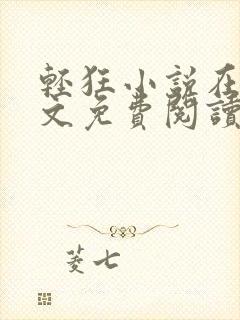 輕狂小說在
文免費閱讀
菱七